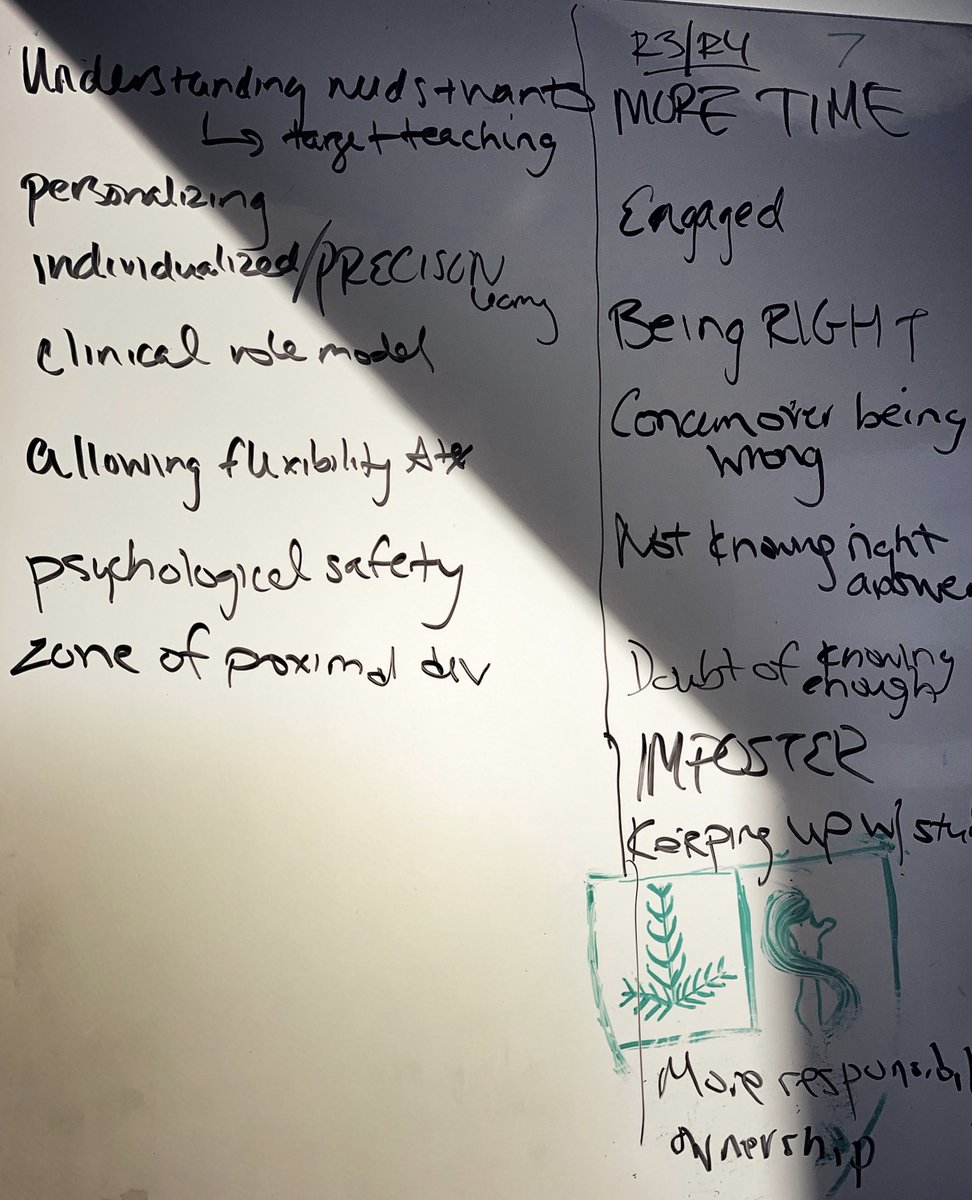 Understanding needs+wants
↳ target teaching
personalizing
individualized/PRECISON
clinical role model
allowing flexibility
psychological safety
zone of proximal dev
R3/R4
MORE TIME
Engaged
Being RIGHT
Concern over being
wrong
Not knowing right
answe
Doubt of knowing
enough
IMPOSTER
Keeping up w/ stu
More responsibil
ownership